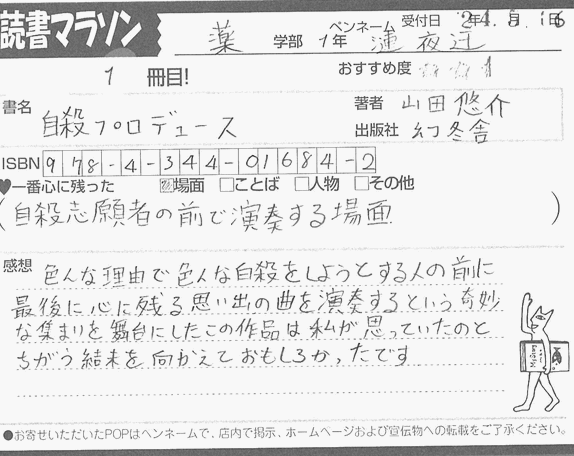 読書マラソン
薬 学部 1年 ペンネーム 蓮 夜辻 受付日 24.5.16
1 冊目! おすすめ度 ☆☆1
書名 自殺プロデュース
著者 山田悠介
出版社 幻冬舎
ISBN 978-4-344-01684-2
♥一番心に残った ☑場面 □ことば □人物 □その他
(自殺志願者の前で演奏する場面)
感想 色んな理由で色んな自殺をしようとする人の前に
最後に心に残る思い出の曲を演奏するという奇妙
な集まりを舞台にしたこの作品は私が思っていたのと
ちがう結末を向かえておもしろかったです
●お寄せいただいたPOPはペンネームで、店内で掲示、ホームページおよび宣伝物への転載をご了承ください。